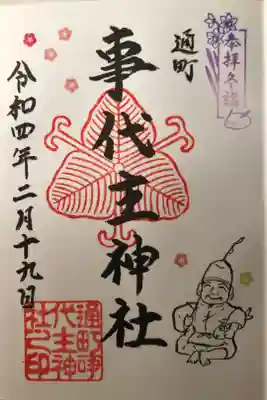 奉拝
通町
事代主神社
令和四年二月十九日
通町事
代主神
社之印